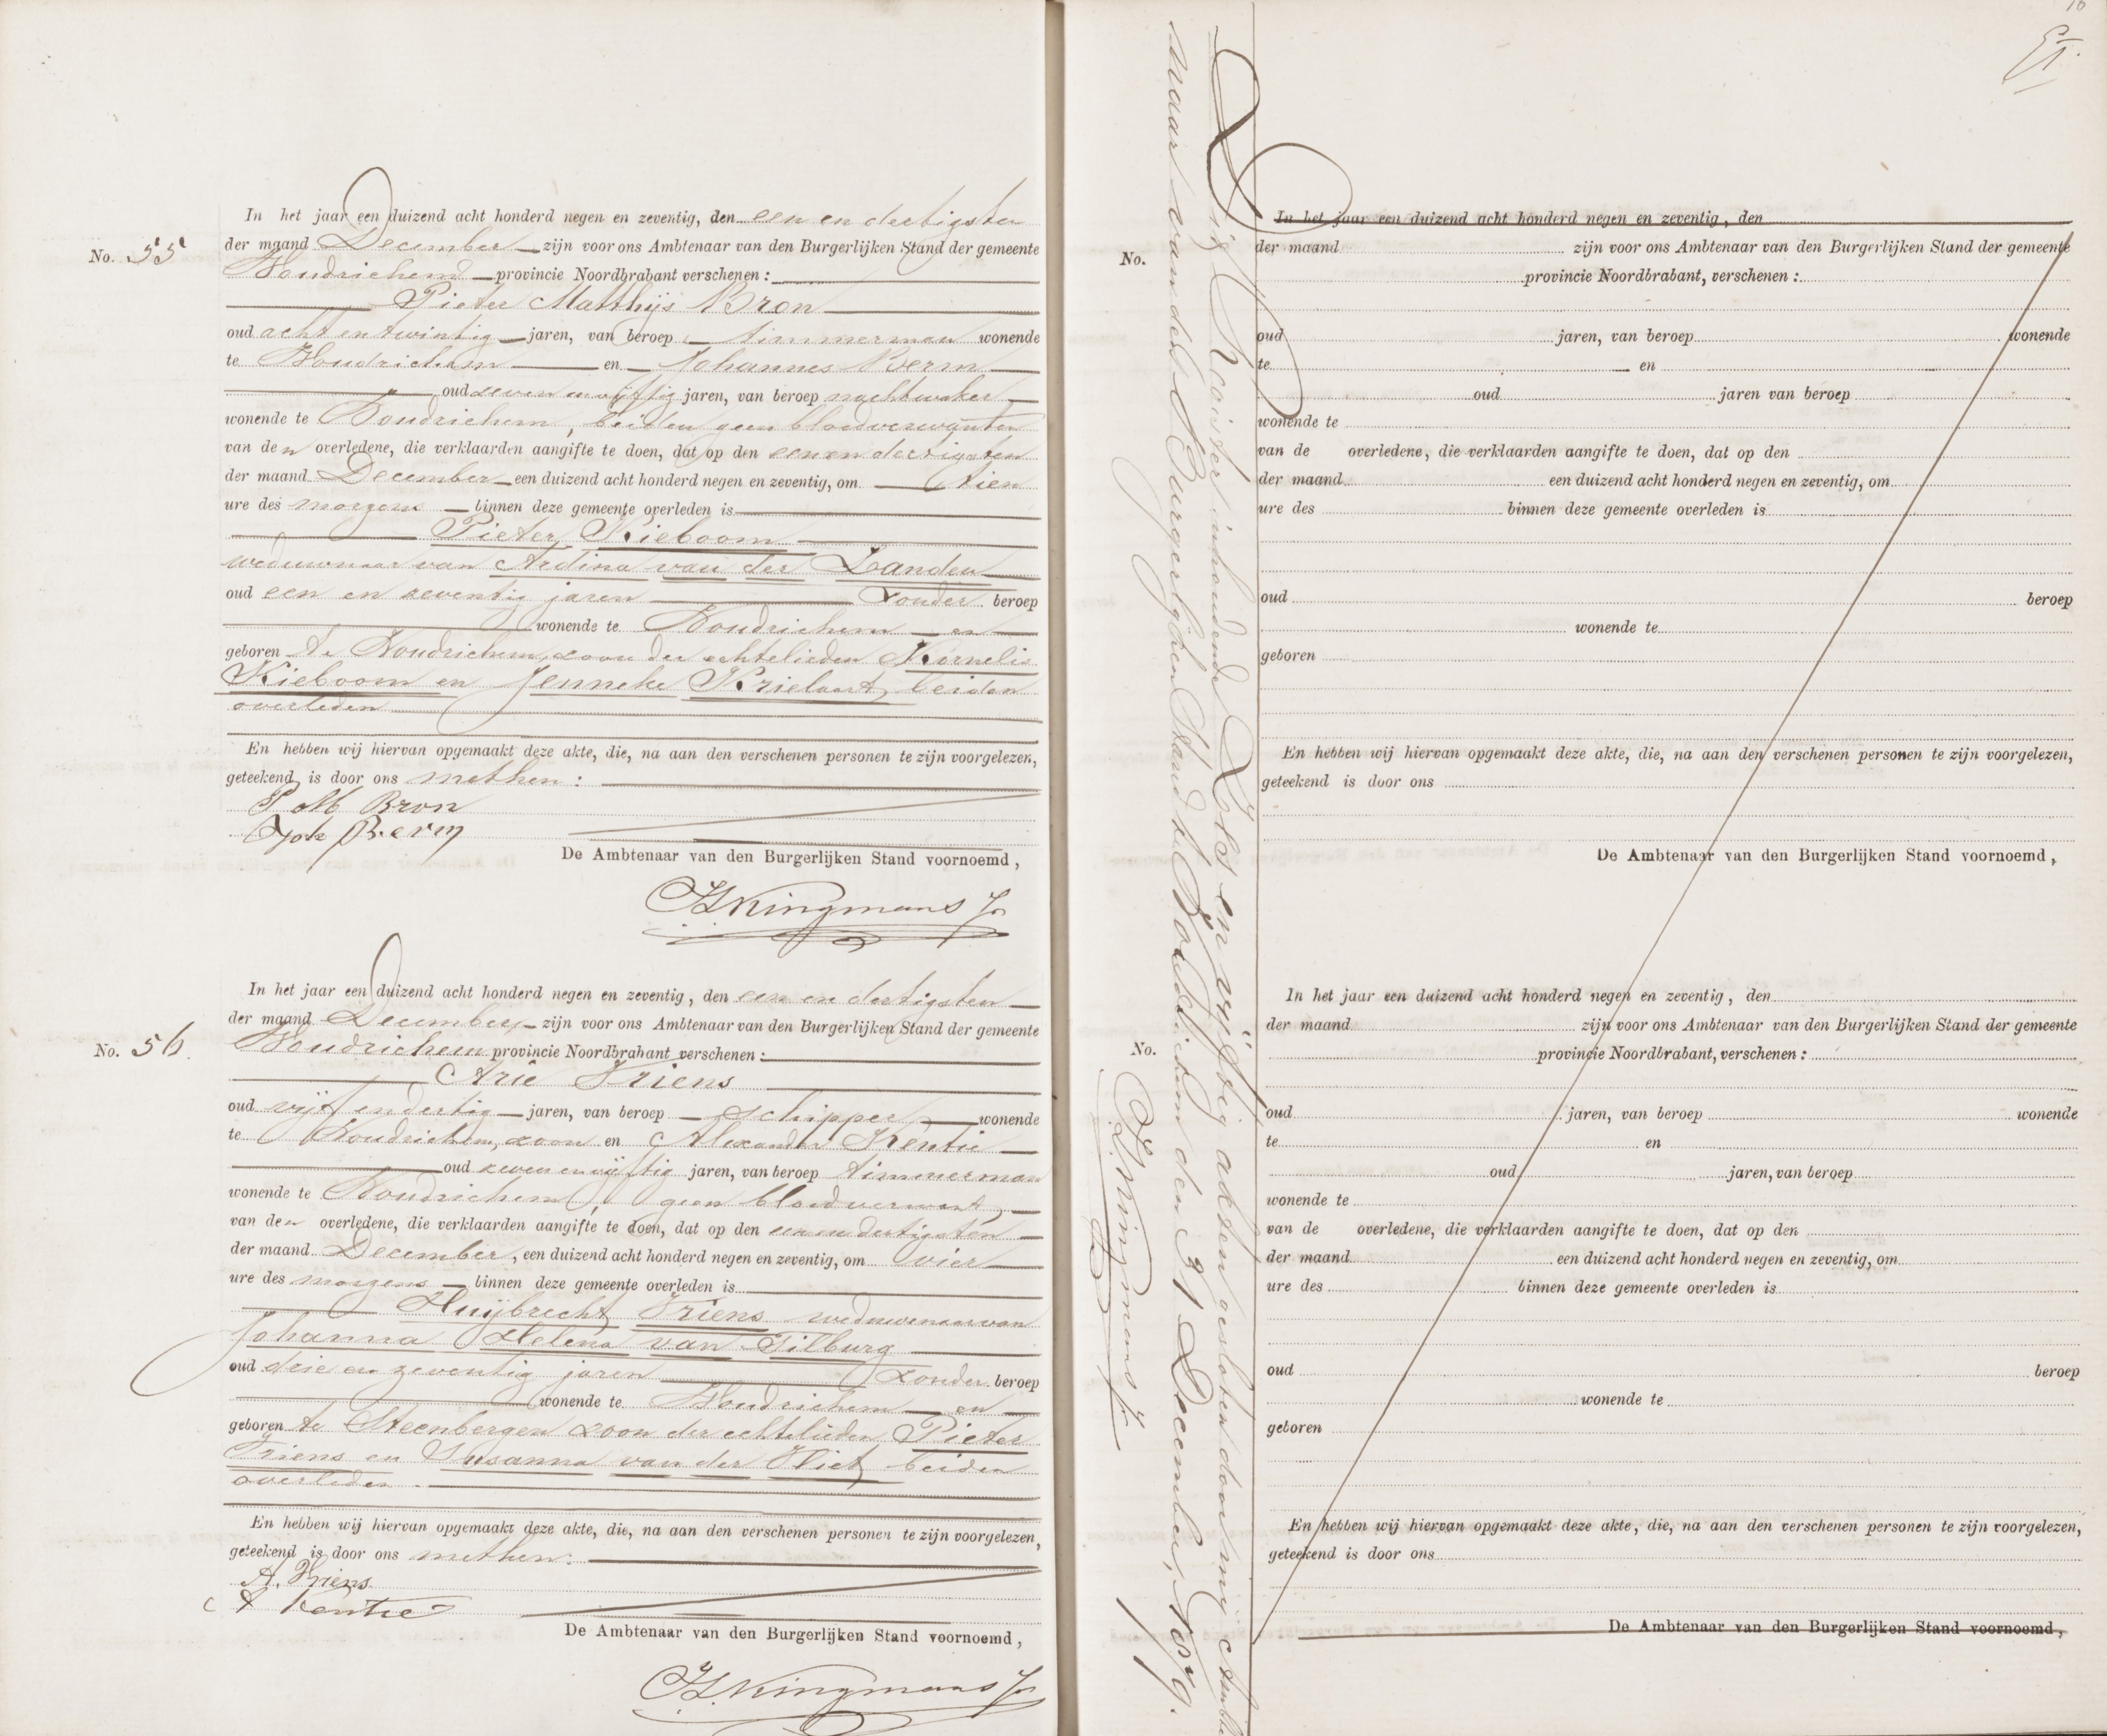 No. 55
In het jaar een duizend acht honderd negen en zeventig, den een en dertigsten
der maand December zijn voor ons Ambtenaar van den Burgerlijken Stand der gemeente
Woudrichem provincie Noordbrabant verschenen:
Pieter Matthijs Bron
oud acht en twintig jaren, van beroep timmerman wonende
te Woudrichem en Johannes Berm
oud zeven en vijftig jaren, van beroep nachtwaker
wonende te Woudrichem, beiden geen bloedverwanten
van den overledene, die verklaarden aangifte te doen, dat op den een en dertigsten
der maand December een duizend acht honderd negen en zeventig, om tien
ure des morgens binnen deze gemeente overleden is
Pieter Kieboom
weduwnaar van Ardina van der Zanden
oud een en zeventig jaren Zonder beroep
wonende te Woudrichem en
geboren te Woudrichem, zoon der echtelieden Kornelis
Kieboom en Jenneke Krielaart, beiden
overleden
En hebben wij hiervan opgemaakt deze akte, die, na aan den verschenen personen te zijn voorgelezen,
geteekend is door ons met hen:
P M Bron
Joh Berm
De Ambtenaar van den Burgerlijken Stand voornoemd,
Kingmans Jr
No. 56.
In het jaar een duizend acht honderd negen en zeventig, den een en dertigsten
der maand December zijn voor ons Ambtenaar van den Burgerlijken Stand der gemeente
Woudrichem provincie Noordbrabant verschenen:
Arie Vriens
oud vijf en dertig jaren, van beroep Schipper wonende
te Woudrichem, zoon en Alexander Kentie
oud zeven en vijftig jaren, van beroep timmerman
wonende te Woudrichem, geen bloedverwant,
van den overledene, die verklaarden aangifte te doen, dat op den een en dertigsten
der maand December, een duizend acht honderd negen en zeventig, om vier
ure des morgens binnen deze gemeente overleden is
Huijbrecht Vriens weduwenaar van
Johanna Helena van Tilburg
oud drie en zeventig jaren Zonder beroep
wonende te Woudrichem en
geboren te Steenbergen zoon der echtelieden Pieter
Vriens en Susanna van der Vliet, beiden
overleden.
En hebben wij hiervan opgemaakt deze akte, die, na aan den verschenen personen te zijn voorgelezen,
geteekend is door ons met hen:
A. Vriens
A Kentie
De Ambtenaar van den Burgerlijken Stand voornoemd,
Kingmans Jr
Dit Register inhoudende Zes en vijftig akten gesloten door mij
naar van den Burgerlijken Stand te Woudrichem den 31 December, 1879.
Kingmans Jr
No.
In het jaar een duizend acht honderd negen en zeventig, den
der maand zijn voor ons Ambtenaar van den Burgerlijken Stand der gemeente
provincie Noordbrabant, verschenen:
oud jaren, van beroep wonende
te en
oud jaren van beroep
wonende te
van de overledene, die verklaarden aangifte te doen, dat op den
der maand een duizend acht honderd negen en zeventig, om
ure des binnen deze gemeente overleden is
oud beroep
wonende te
geboren
En hebben wij hiervan opgemaakt deze akte, die, na aan den verschenen personen te zijn voorgelezen,
geteekend is door ons
De Ambtenaar van den Burgerlijken Stand voornoemd,
No.
In het jaar een duizend acht honderd negen en zeventig, den
der maand zijn voor ons Ambtenaar van den Burgerlijken Stand der gemeente
provincie Noordbrabant, verschenen:
oud jaren, van beroep wonende
te en
oud jaren, van beroep
wonende te
van de overledene, die verklaarden aangifte te doen, dat op den
der maand een duizend acht honderd negen en zeventig, om
ure des binnen deze gemeente overleden is
oud beroep
wonende te
geboren
En hebben wij hiervan opgemaakt deze akte, die, na aan den verschenen personen te zijn voorgelezen,
geteekend is door ons
De Ambtenaar van den Burgerlijken Stand voornoemd,